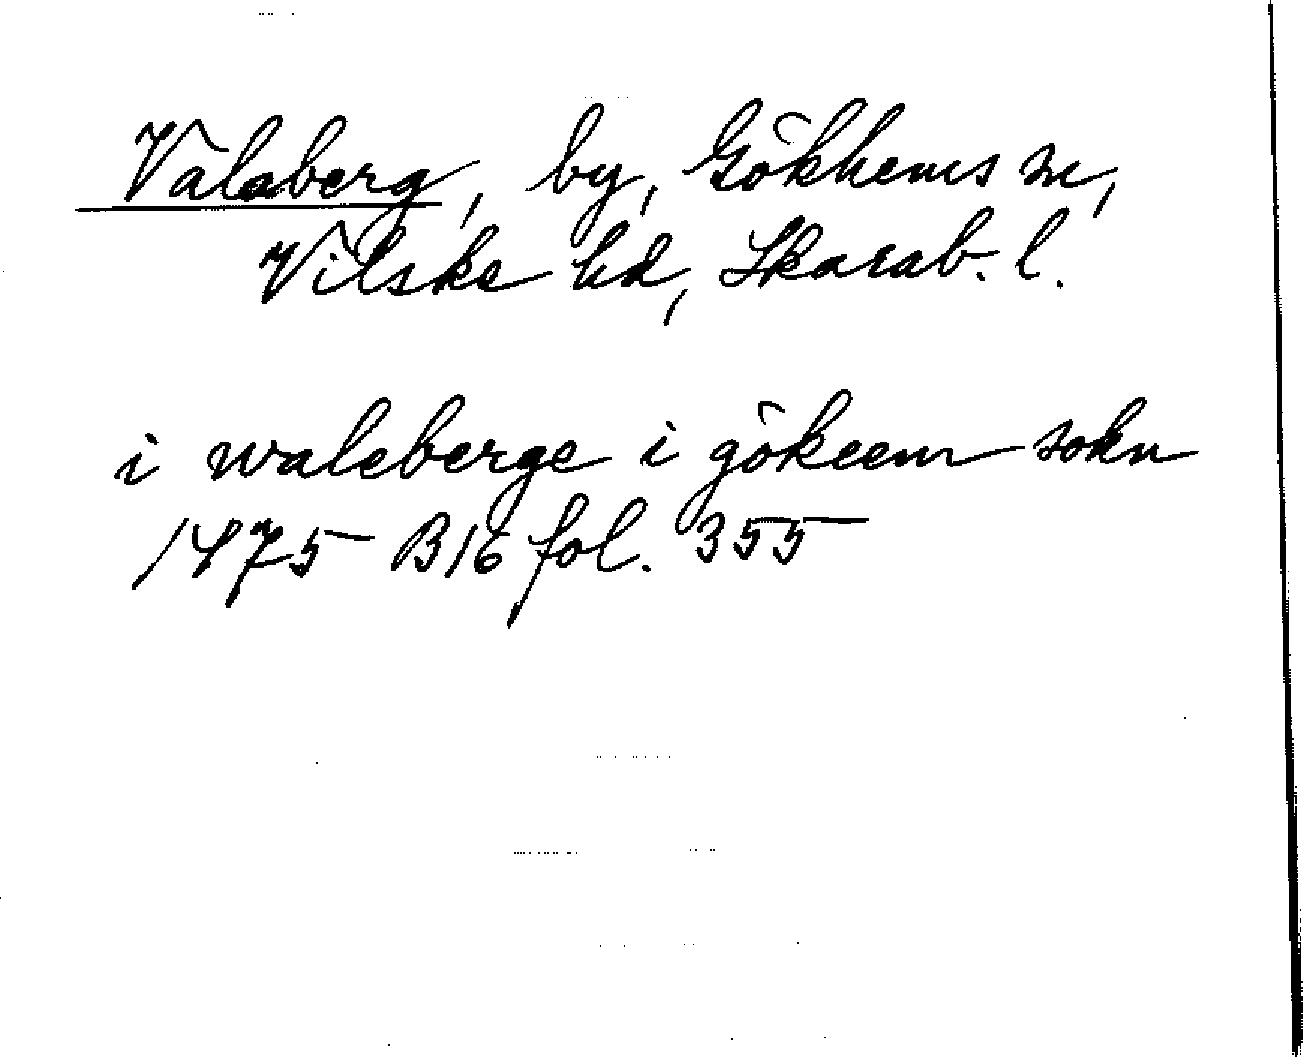 Valaberg, by, Gökhems sn,
Vilske hd, Skarab. l.
i waleberge i gökeem sokn
1475 B16 fol. 355